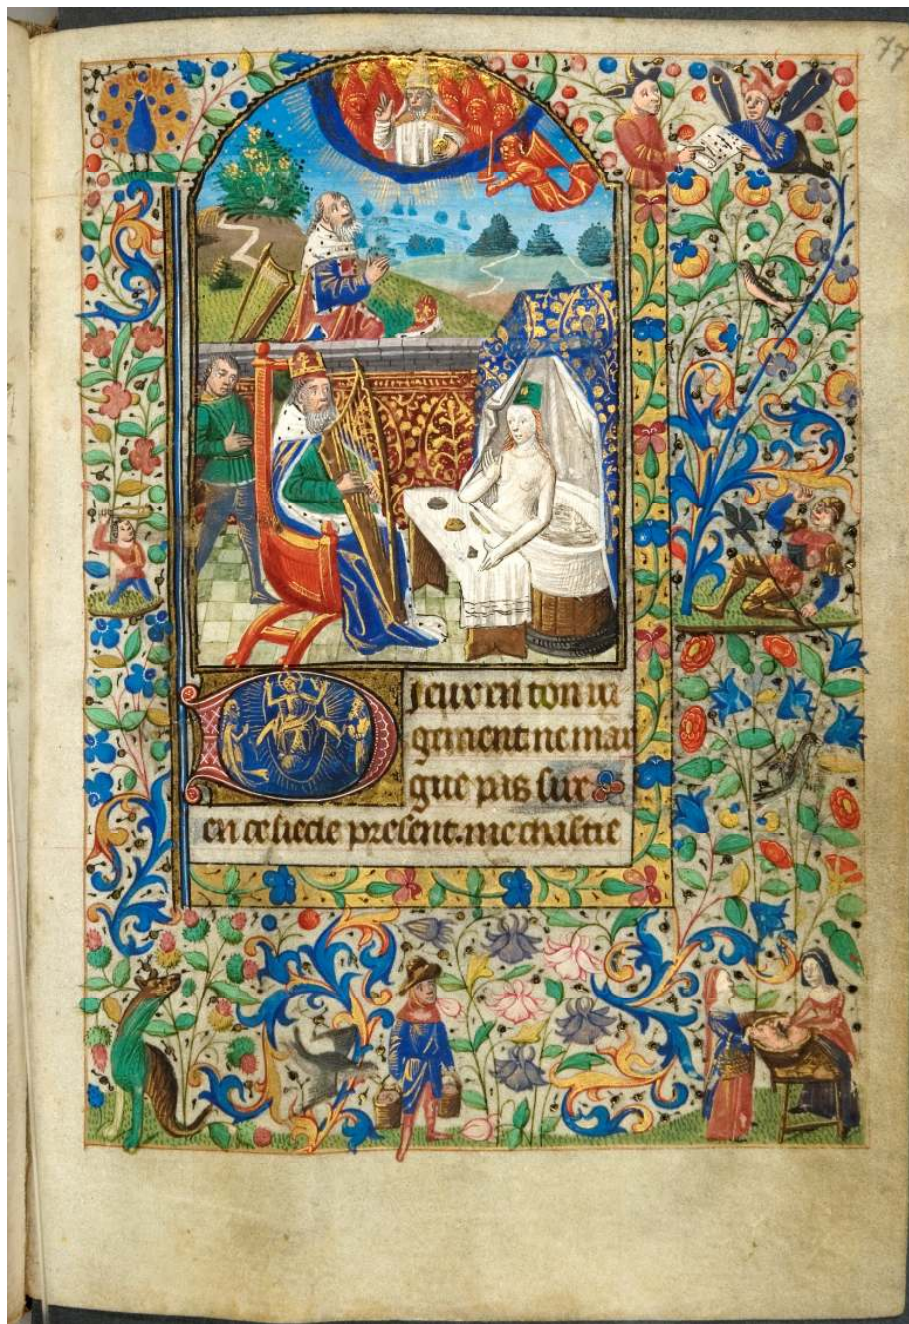 77
Dieux en ton iu
gement ne mar
gue pas sur
en ce siecle present. me chastie